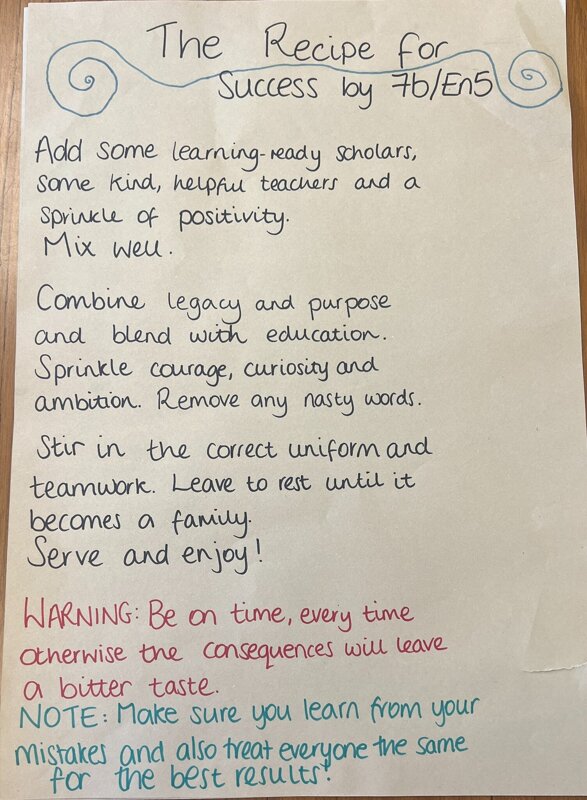 The Recipe for
Success by 7b/En5
Add some learning-ready scholars,
some kind, helpful teachers and a
sprinkle of positivity.
Mix well.
Combine legacy and purpose
and blend with education.
Sprinkle courage, curiosity and
ambition. Remove any nasty words.
Stir in the correct uniform and
teamwork. Leave to rest until it
becomes a family.
Serve and enjoy!
WARNING: Be on time, every time
otherwise the consequences will leave
a bitter taste.
NOTE: Make sure you learn from your
mistakes and also treat everyone the same
for the best results!